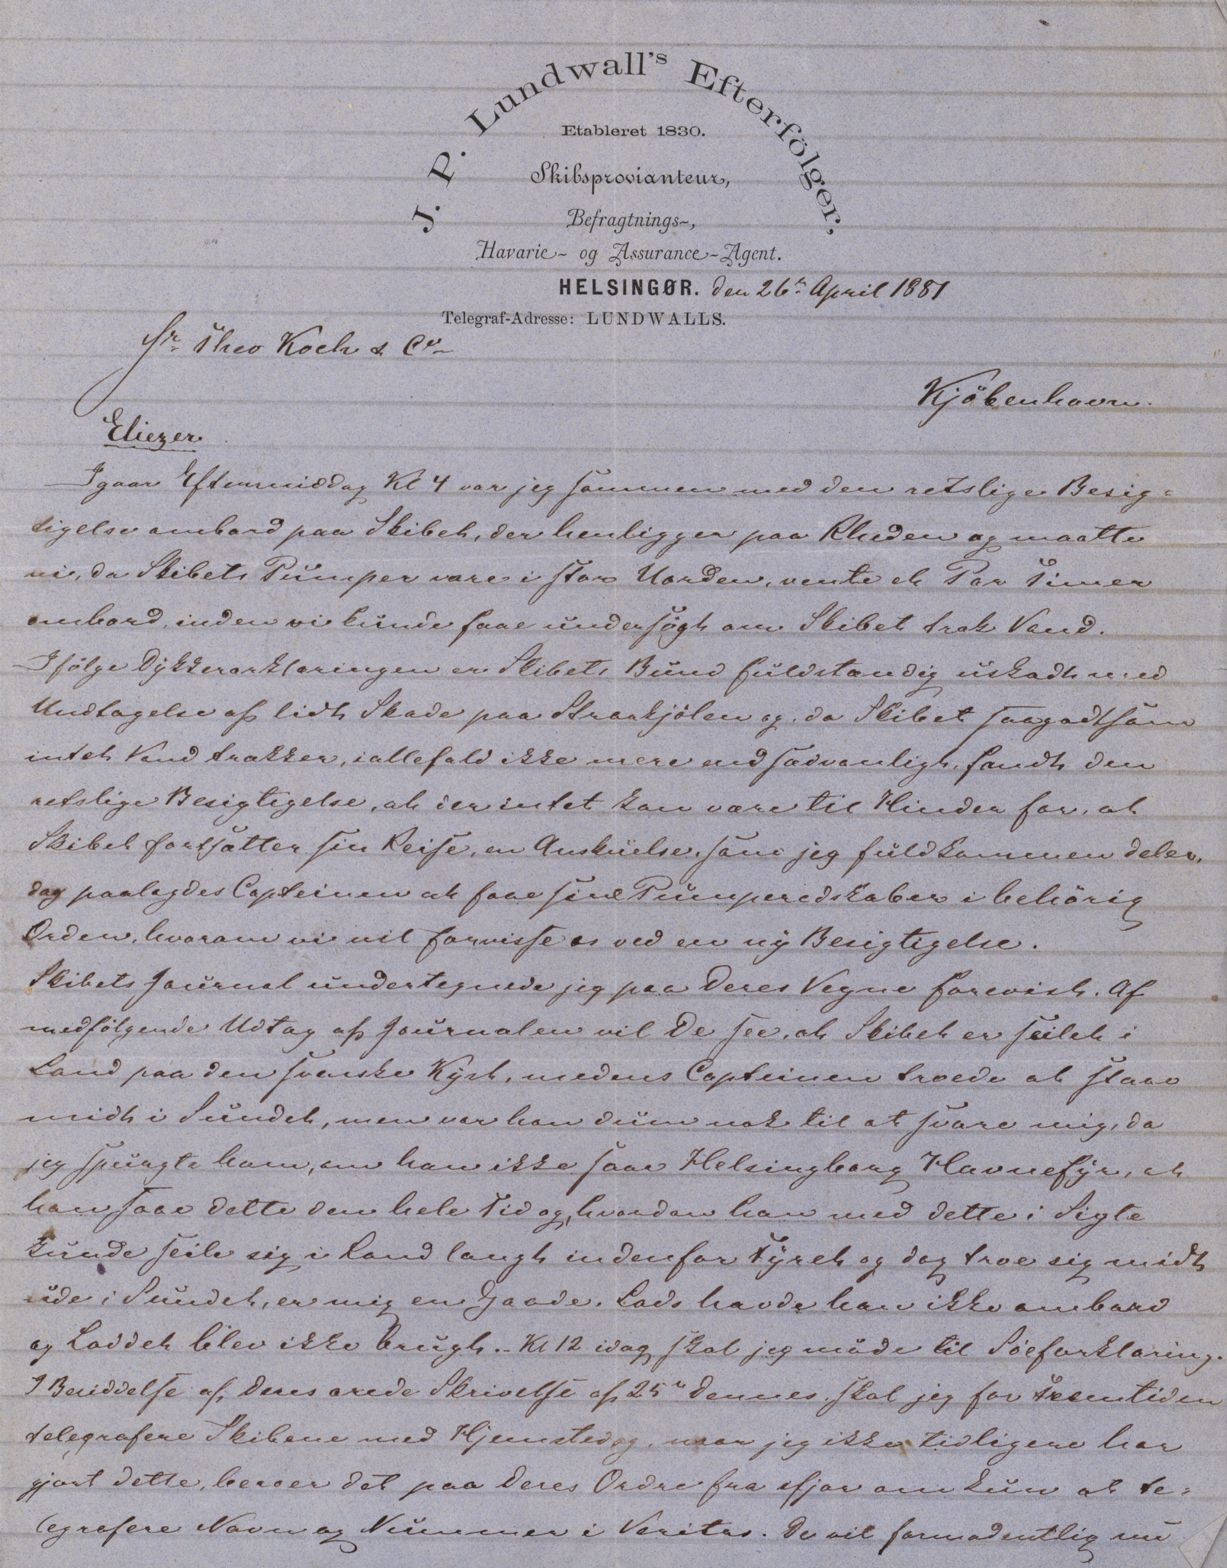 J. P. Lundwall's Efterfölger,
Etableret 1830.
Skibsprovianteur,
Befragtnings-,
Havarie- og Assurance-Agent.
HELSINGØR. den 26de April 1881
Telegraf-Adresse: LUNDWALLS.
Hr Theo Koch & Co
Kjöbenhavn.
Eliezer
Igaar Eftermiddag Kl 4 var jeg sammen med den retslige Besig-
tigelse ombord paa Skibet, der henligger paa Rheden og maatte
vi, da Skibets Pumper vare i stor Uorden, vente et Par Timer
ombord, inden vi kunde faae undersögt om Skibet trak Vand.
Ifölge Dykkererklæringen er Skibets Bund fuldstændig uskadt med
Undtagelse af lidt Skade paa Straakjölen og, da Skibet saagodtsom
intet Vand trækker, iallefald ikke mere end sædvanligt, fandt den
retslige Besigtigelse, at der intet kan være til Hinder for, at
Skibet fortsætter sin Reise, en Anskuelse, som jeg fuldkommen deler,
dog paalagdes Capteinen at faae sine Pumperedskaber i behörig
Orden, hvorom vi vil forvisse os ved en ny Besigtigelse.
Skibets Journal undertegnede jeg paa Deres Vegne forevist. Af
medfölgende Udtog af Journalen vil De see, at Skibet er seilet i
Land paa den svenske Kyst, medens Capteinen troede at staae
midt i Sundet, men var han dum nok til at svare mig, da
jeg spurgte ham, om han ikke saae Helsingborg Havnefyr, at
han saae dette den hele Tid og, hvordan han med dette i Sigte
kunde seile sig i Land langt indenfor Fyret og dog troe sig midt
ude i Sundet, er mig en Gaade. Lods havde han ikke ombord
og Loddet blev ikke brugt. Kl 12 idag skal jeg möde til Söeforklaring.
I Besiddelse af Deres ærede Skrivelse af 25de Dennes, skal jeg for Fremtiden
telegrafere Skibene med Hjemsted og, naar jeg ikke tidligere har
gjort dette, beroer det paa Deres Ordre fra ifjor om kun at te-
legrafere Navn og Nummer i Veritas. De vil formodentlig nu